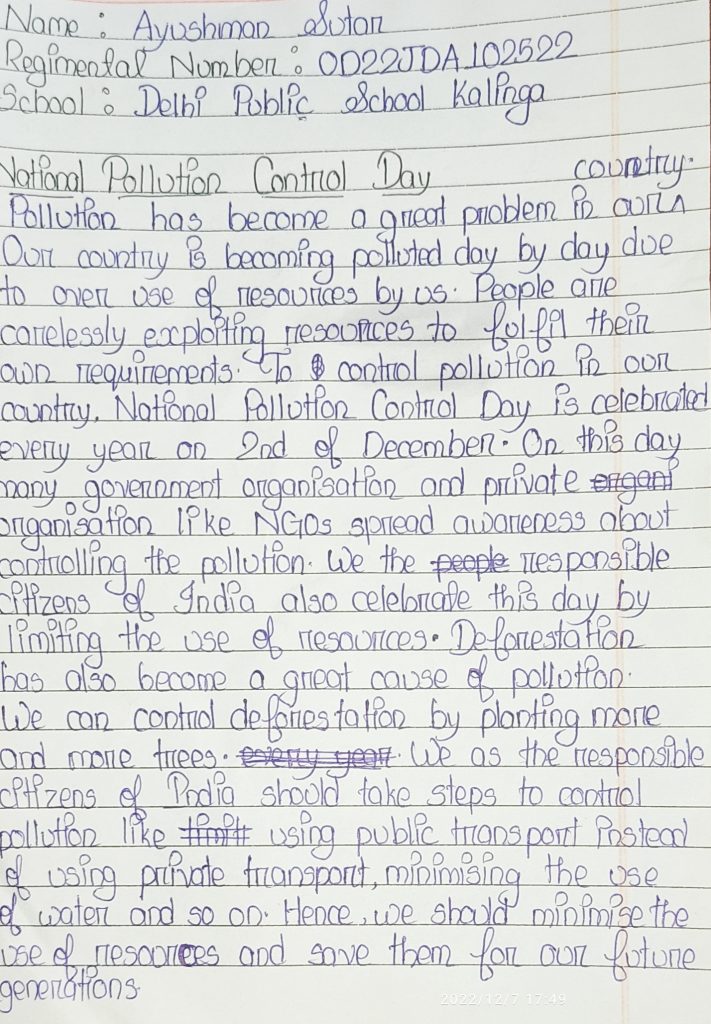 Name : Ayushman Sutar
Regimental Number : OD22JDA102522
School : Delhi Public School Kalinga
National Pollution Control Day
Pollution has become a great problem in our country.
Our country is becoming polluted day by day due
to over use of resources by us. People are
carelessly exploiting resources to fulfil their
own requirements. To control pollution in our
country, National Pollution Control Day is celebrated
every year on 2nd of December. On this day
many government organisation and private organi
organisation like NGOs spread awareness about
controlling the pollution. We the people responsible
citizens of India also celebrate this day by
limiting the use of resources. Deforestation
has also become a great cause of pollution.
We can control deforestation by planting more
and more trees. every year. We as the responsible
citizens of India should take steps to control
pollution like limit using public transport instead
of using private transport, minimising the use
of water and so on. Hence, we should minimise the
use of resources and save them for our future
generations.
2022/12/7 17:49